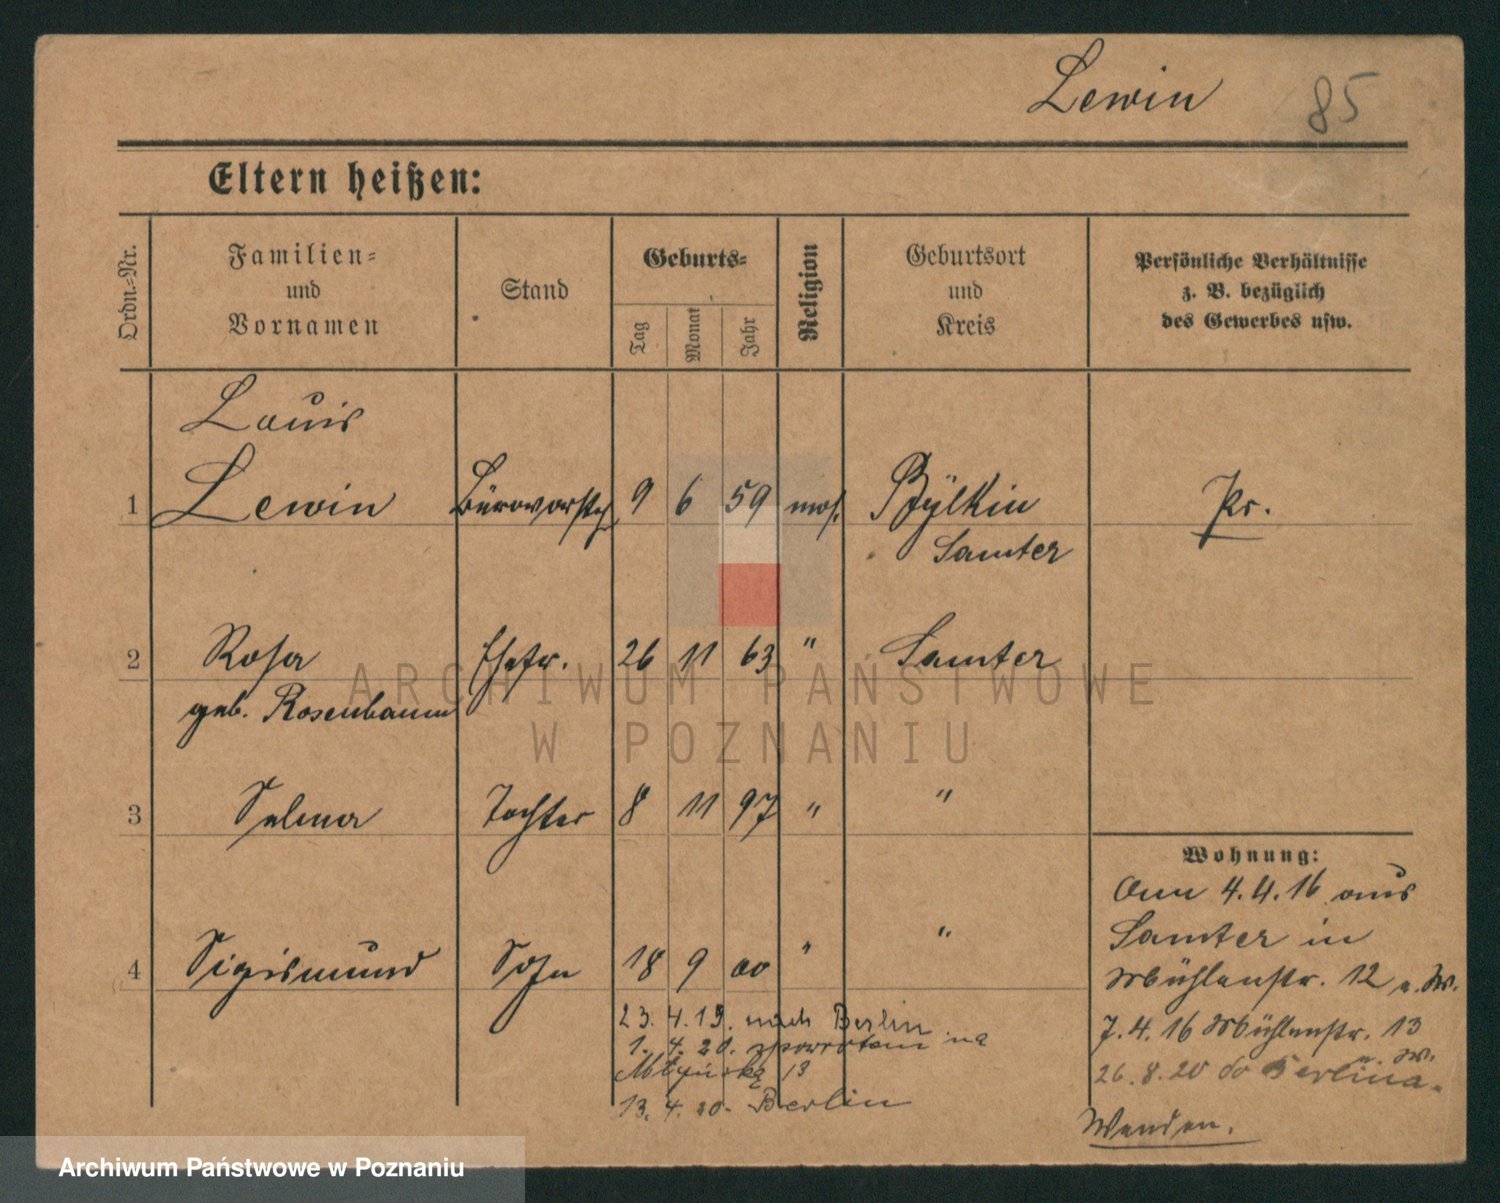 Lewin 85
Eltern heißen:
Ordn.=Nr.
Familien=
und
Vornamen
Stand
Geburts=
Tag Monat Jahr
Religion
Geburtsort
und
Kreis
Persönliche Verhältnisse
z. B. bezüglich
des Gewerbes usw.
Louis
1 Lewin Bürovorsth. 9 6 59 mos. Bÿlkin Pr.
Samter
2 Rosa Ehefr. 26 11 63 " Samter
geb. Rosenbaum
3 Selma Tochter 8 11 97 " "
4 Sigismund Sohn 18 9 00 " "
23. 4. 19. nach Berlin
1. 4. 20. zpowrotem na
Młyńską 13
13. 4. 20. Berlin
Wohnung:
Am 4.4.16 aus
Samter in
Mühlenstr. 12
7.4.16 Mühlenstr. 13
26.8.20 do Berlina.
Wenden.
ARCHIWUM PAŃSTWOWE
W POZNANIU
Archiwum Państwowe w Poznaniu